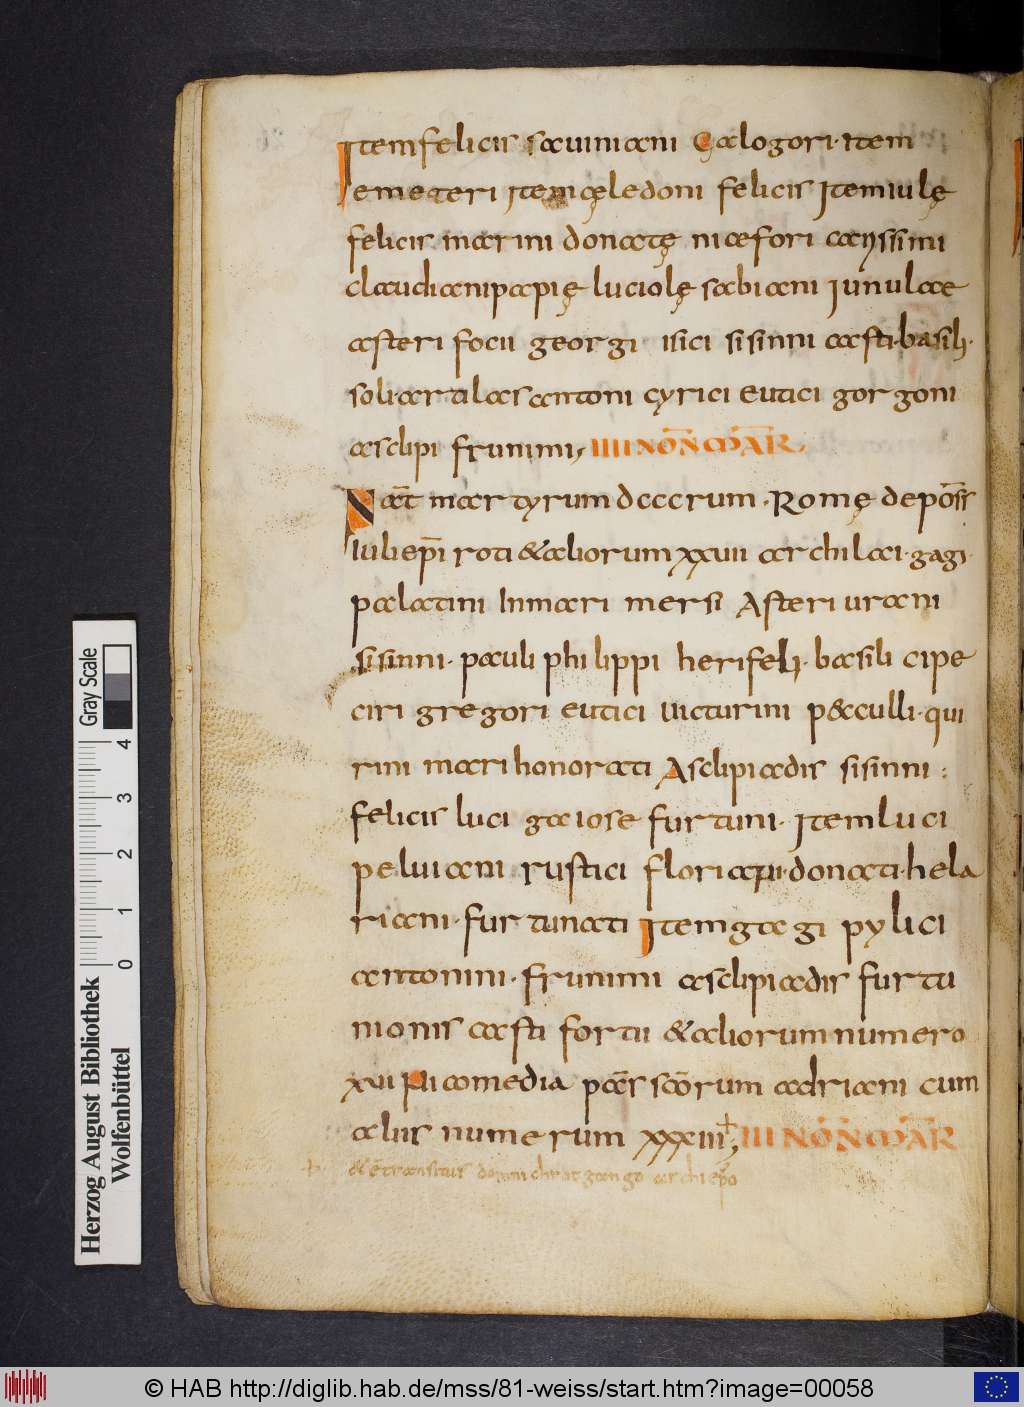 Item felicis sauiniani Calogori· Item
emeteri Item cęledoni felicis Item iulę
felicis marini donatę niafori carissimi
claudiani papię luciolę sabiani Iunulae
asteri focii georgi isici sisinni casti· basili·
soli· artilas antoni cyrici eutici gorgoni
asclipi frunimi, IIII NON̄ MAR̄.
Nat̄ martyrum dcccrum· Romę depōs
iuli ep̄i roti &aliorum xxuii archilai· gagi·
palatini Inmari mersi Asteri urani
sisinni· pauli philippi herifeli· basili cipe
ciri gregori eutici uicturini p&culli· qui
rini mari honorati Asclipiadis sisinni :
felicis luci gaiose furtuni· Item luci
peluiani rustici floriani· donati· hela
riani· furtunati Item gagi pylici
antonini· frunimi asclipiadis furtu
nionis casti fortu &aliorum numero
xuii Nicomedia pas̄ sc̄orum adriani cum
aliis numerum xxxiii, III NON̄ MAR̄
& ē transitus domni chrotgango archiep̄o
Gray Scale
4
3
2
1
0
Herzog August Bibliothek
Wolfenbüttel
© HAB http://diglib.hab.de/mss/81-weiss/start.htm?image=00058